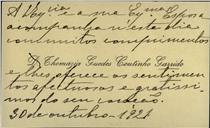 A V. Ex.cia e a sua Ex.ma Esposa
acompanha n'este dia
com muitos cumprimentos
Thomazia Guedes Coutinho Garrido
e lhes oferece os sentimentos
afectuosos e gratissimos
do seu coração.
30 de outubro - 1924